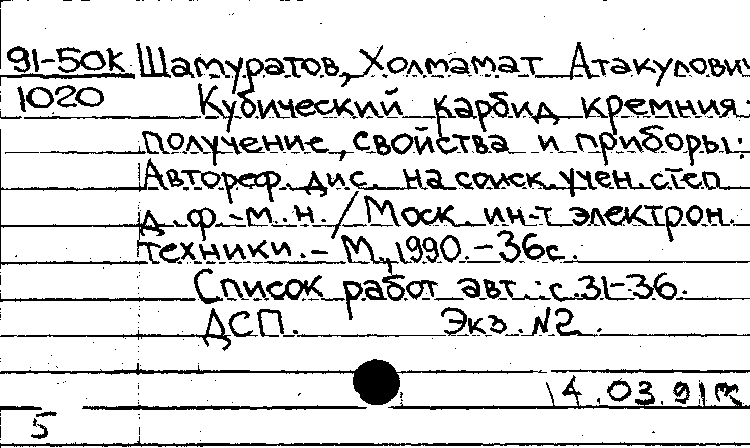 91-50К Шамуратов, Холмамат Атакулович
1020 Кубический карбид кремния:
получение, свойства и приборы:
Автореф. дис. на соиск. учен. степ
д.ф.-м.н. / Моск. ин-т электрон.
техники. - М., 1990. - 36с.
Список работ авт.: с.31-36.
ДСП. Экз. №2.
14.03.91
5